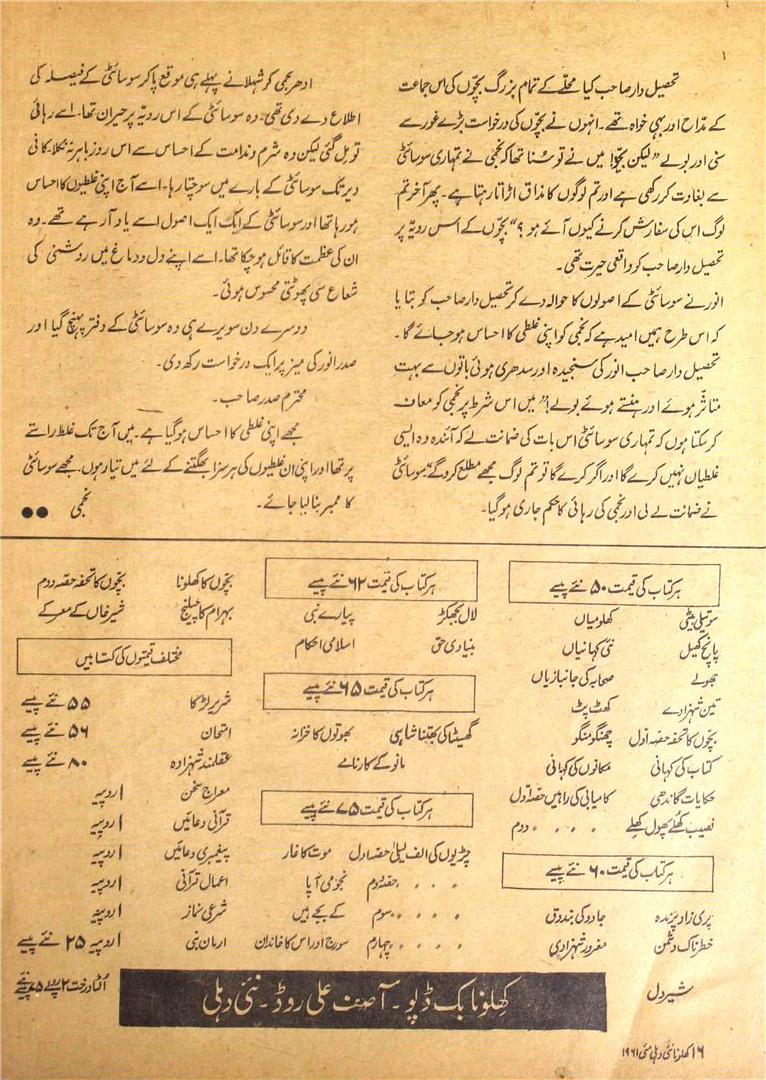 تحصیل دار صاحب کیا محلّے کے تمام بزرگ بچّوں کی اس جماعت
کے مدّاح اور بہی خواہ تھے۔ انہوں نے بچّوں کی درخواست بڑے غور سے
سنی اور بولے "لیکن بچّو! میں نے تو سُنا تھا کہ نجمی نے تمہاری سوسائٹی
سے بغاوت کر رکھی ہے اور تم لوگوں کا مذاق اڑاتا رہتا ہے۔ پھر آخر تم
لوگ اس کی سفارش کرنے کیوں آئے ہو؟" بچّوں کے اس رویّہ پر
تحصیل دار صاحب کو واقعی حیرت تھی۔
انور نے سوسائٹی کے اصولوں کا حوالہ دے کر تحصیل دار صاحب کو بتایا
کہ اس طرح ہمیں امید ہے کہ نجمی کو اپنی غلطی کا احساس ہو جائے گا۔
تحصیل دار صاحب انور کی سنجیدہ اور سدھری ہوئی باتوں سے بہت
متاثّر ہوئے اور ہنستے ہوئے بولے! "میں اس شرط پر نجمی کو معاف
کر سکتا ہوں کہ تمہاری سوسائٹی اس بات کی ضمانت لے کہ آئندہ وہ ایسی
غلطیاں نہیں کرے گا اور اگر کرے گا تو تم لوگ مجھے مطلع کرو گے" سوسائٹی
نے ضمانت لے لی اور نجمی کی رہائی کا حکم جاری ہو گیا۔
ادھر نجمی کو شہلا نے پہلے ہی موقع پا کر سوسائٹی کے فیصلہ کی
اطلاع دے دی تھی۔ وہ سوسائٹی کے اس رویّہ پر حیران تھا۔ اسے رہائی
تو مل گئی لیکن وہ شرم و ندامت کے احساس سے اس روز باہر نہ نکلا۔ کافی
دیر تک سوسائٹی کے بارے میں سوچتا رہا۔ اسے آج اپنی غلطیوں کا احساس
ہو رہا تھا اور سوسائٹی کے ایک ایک اصول اسے یاد آ رہے تھے۔ وہ
ان کی عظمت کا قائل ہو چکا تھا۔ اسے اپنے دل و دماغ میں روشنی کی
شعاع سی پھوٹتی محسوس ہوئی۔
دوسرے دن سویرے ہی وہ سوسائٹی کے دفتر پہنچ گیا اور
صدر انور کی میز پر ایک درخواست رکھ دی۔
محترم صدر صاحب۔
مجھے اپنی غلطی کا احساس ہو گیا ہے۔ میں آج تک غلط راستے
پر تھا اور اپنی ان غلطیوں کی ہر سزا بھگتنے کے لئے میں تیار ہوں۔ مجھے سوسائٹی
کا ممبر بنا لیا جائے۔
نجمی ●●
ہر کتاب کی قیمت ۵۰ نئے پیسے
سوتیلی بیٹی کھلو میاں
پانچ کھیل نئی کہانیاں
جھولے صحابہ کی جانبازیاں
تین شہزادے کھٹ پٹ
بچوں کا تحفہ حصہ اوّل چھنگو منگو
کتاب کی کہانی مکانوں کی کہانی
حکایات گاندھی کامیابی کی راہیں حصہ اوّل
نصیب کھُلے پھول کھلے ۰ ۰ ۰ ۰ دوم
ہر کتاب کی قیمت ۶۰ نئے پیسے
پری زاد پرندہ جادو کی بندوق
خطرناک دشمن مغرور شہزادی
شیر دل
ہر کتاب کی قیمت ۶۲ نئے پیسے
لال بجھکڑ پیارے نبی
بنیادی حق اسلامی احکام
ہر کتاب کی قیمت ۶۵ نئے پیسے
گھسیٹا کی بھتنا شاہی بھوتوں کا خزانہ
مانو کے کارنامے
ہر کتاب کی قیمت ۷۵ نئے پیسے
چڑیوں کی الف لیلیٰ حصہ اول موت کا غار
۰ ۰ ۰ ۰ حصہ دوم نجومی آیا
۰ ۰ ۰ ۰ سوم کے بجے ہیں
۰ ۰ ۰ ۰ چہارم سورج اور اس کا خاندان
بچوں کا کھلونا بچوں کا تحفہ حصہ دوم
بہرام کا چیلنج شیر خاں کے معرکے
مختلف قیمتوں کی کتابیں
شریر لڑکا ۵۵ نئے پیسے
امتحان ۵۶ نئے پیسے
عقلمند شہزادہ ۸۰ نئے پیسے
معراج سخن ۱ روپیہ
قرآنی دعائیں ۱ روپیہ
پیغمبری دعائیں ۱ روپیہ
اعمال قرآنی ۱ روپیہ
شرعی نماز ۱ روپیہ
ارمان نبی ۱ روپیہ ۲۵ نئے پیسے
اُلٹا درخت ۲ روپے ۷۵ نئے پیسے
کھلونا بک ڈپو۔ آصف علی روڈ۔ نئی دہلی
۱۶ کھلونا نئی دہلی مئی ۱۹۶۱